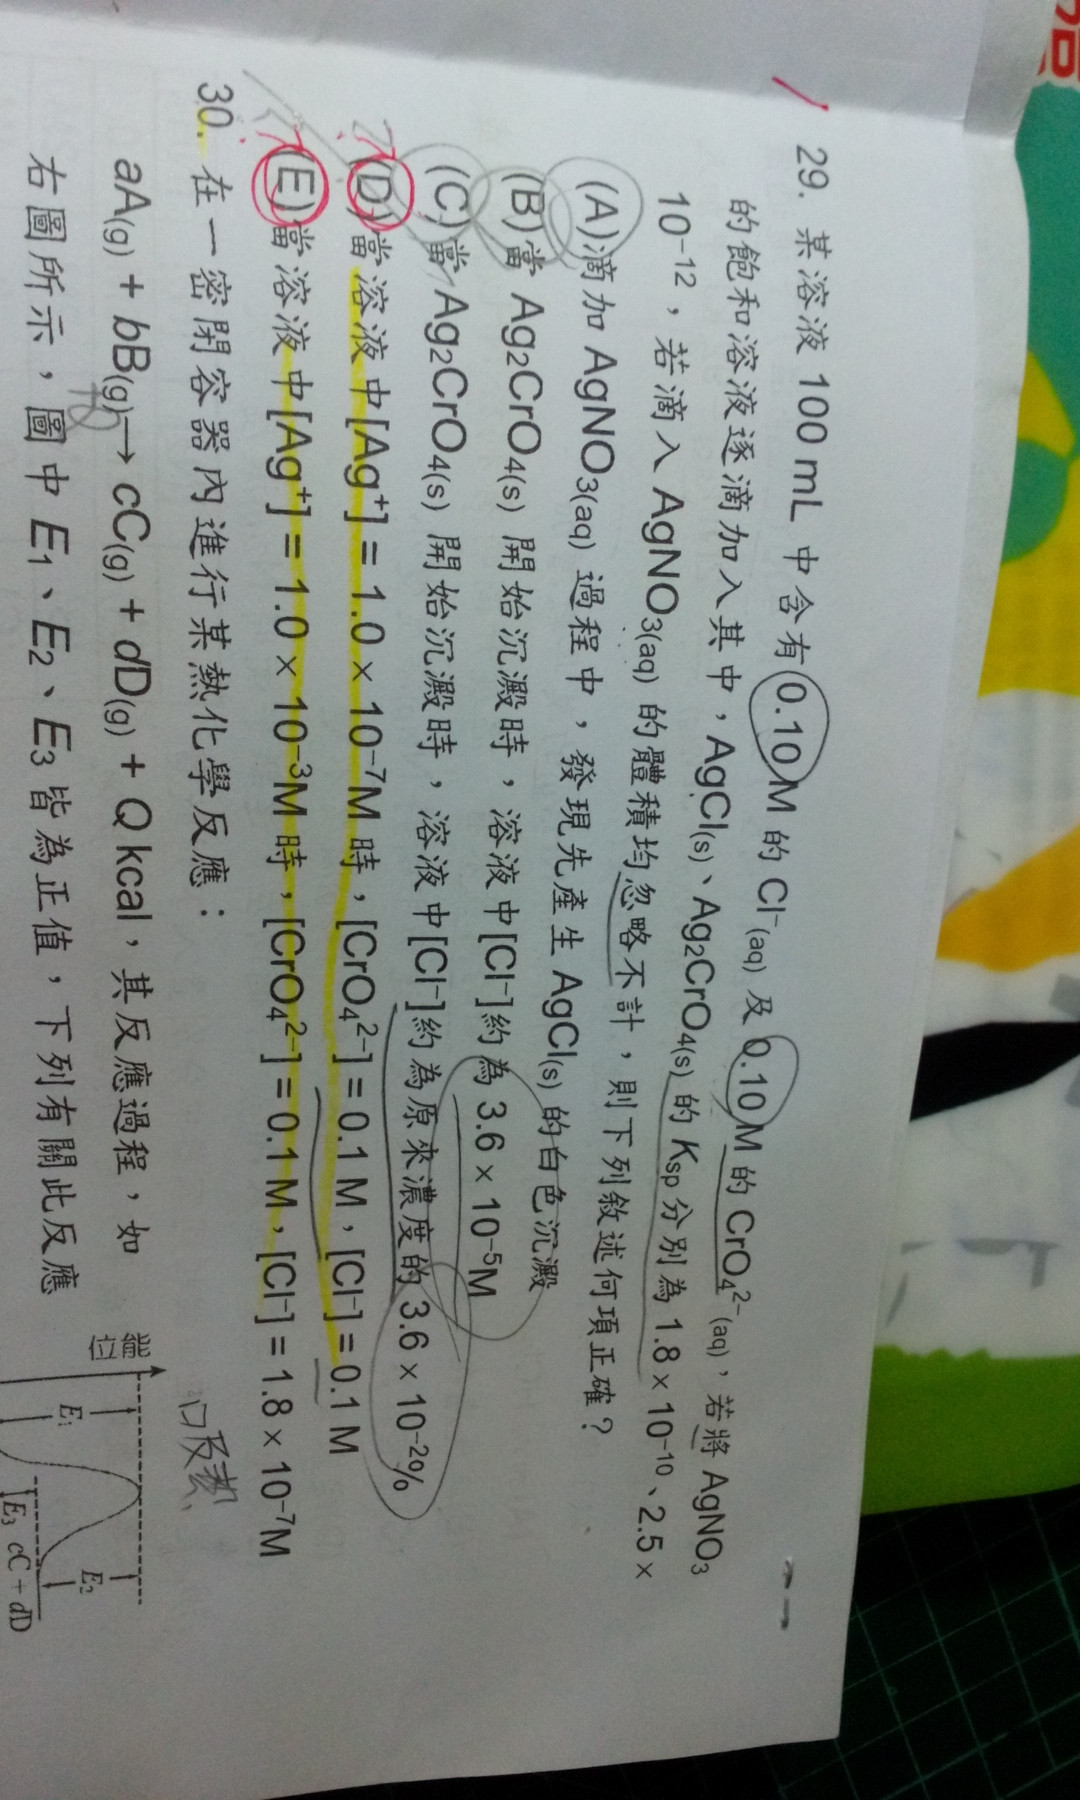 29. 某溶液 100 mL 中含有 0.10 M 的 Cl⁻(aq) 及 0.10 M 的 CrO₄²⁻(aq)，若將 AgNO₃
的飽和溶液逐滴加入其中，AgCl(s)、Ag₂CrO₄(s) 的 Ksp 分別為 1.8 × 10⁻¹⁰、2.5 ×
10⁻¹²，若滴入 AgNO₃(aq) 的體積均忽略不計，則下列敘述何項正確？
(A)滴加 AgNO₃(aq) 過程中，發現先產生 AgCl(s) 的白色沉澱
(B)當 Ag₂CrO₄(s) 開始沉澱時，溶液中[Cl⁻]約為 3.6 × 10⁻⁵M
(C)當 Ag₂CrO₄(s) 開始沉澱時，溶液中[Cl⁻]約為原來濃度的 3.6 × 10⁻²%
(D)當溶液中[Ag⁺] = 1.0 × 10⁻⁷M 時，[CrO₄²⁻] = 0.1 M，[Cl⁻] = 0.1 M
(E)當溶液中[Ag⁺] = 1.0 × 10⁻³M 時，[CrO₄²⁻] = 0.1 M，[Cl⁻] = 1.8 × 10⁻⁷M
30. 在一密閉容器內進行某熱化學反應：
aA(g) + bB(g) → cC(g) + dD(g) + Q kcal，其反應過程，如
右圖所示，圖中 E₁、E₂、E₃ 皆為正值，下列有關此反應
位能
E₁
E₂
E₃
cC + dD